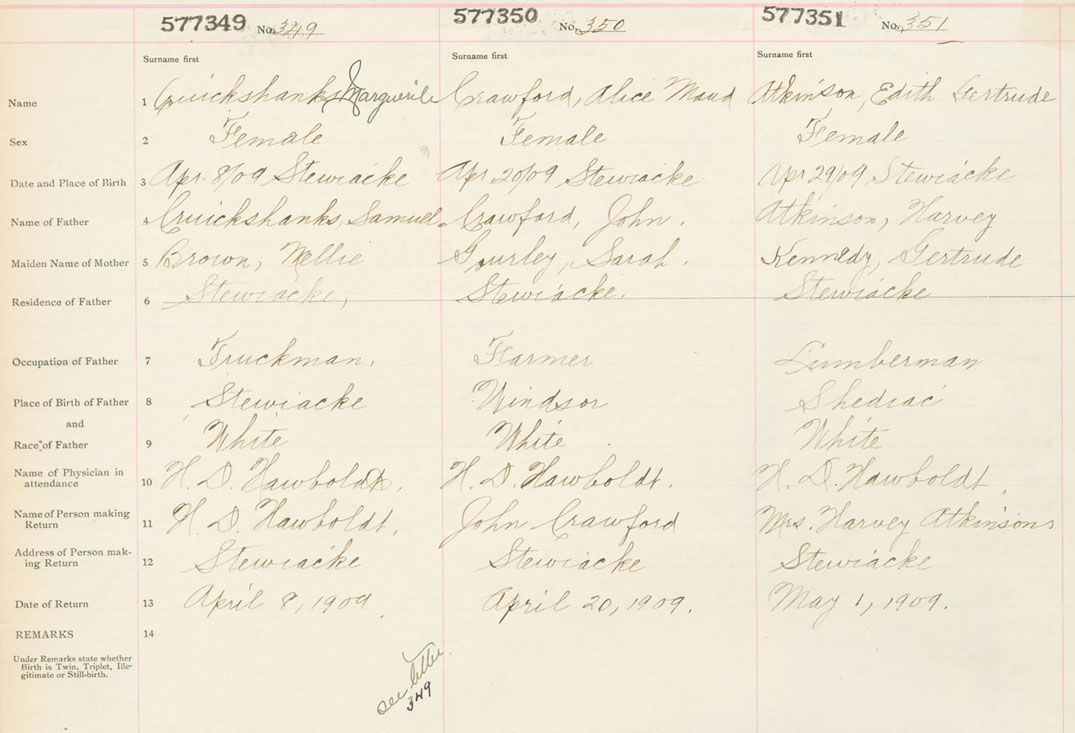 577349 No. 349 577350 No. 350 577351 No. 351
Surname first Surname first Surname first
Name 1 Cruickshanks, Marguerite Crawford, Alice Maud Atkinson, Edith Gertrude
Sex 2 Female Female Female
Date and Place of Birth 3 Apr. 8/09 Stewiacke Apr 20/09 Stewiacke Apr 29/09 Stewiacke
Name of Father 4 Cruickshanks, Samuel Crawford, John. Atkinson, Harvey
Maiden Name of Mother 5 Brown, Nellie Gourley, Sarah. Kennedy, Gertrude
Residence of Father 6 Stewiacke, Stewiacke. Stewiacke
Occupation of Father 7 Truckman. Farmer Lumberman
Place of Birth of Father 8 Stewiacke Windsor Shediac
and
Race of Father 9 White White White
Name of Physician in
attendance 10 H. D. Hawboldt. H. D. Hawboldt. H. D. Hawboldt.
Name of Person making
Return 11 H. D. Hawboldt. John Crawford Mrs. Harvey Atkinson
Address of Person mak-
ing Return 12 Stewiacke Stewiacke Stewiacke
Date of Return 13 April 8, 1909 April 20, 1909. May 1, 1909.
REMARKS 14
Under Remarks state whether
Birth is Twin, Triplet, Ille-
gitimate or Still-birth.
see letter
349